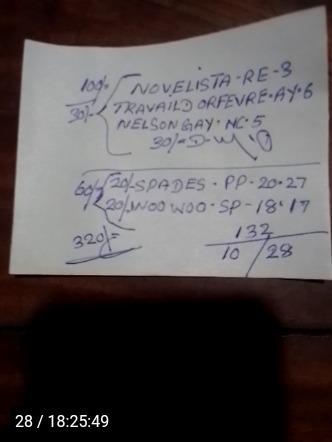 100/-
30/-
NOVELISTA-RE-3
TRAVAIL D ORFEVRE·AY·6
NELSON GAY·NC·5
30/-D-W
60/-
20/-SPADES·PP-20·27
20/-WOO WOO-SP-18·17
320/=
132
10/28
28 / 18:25:49